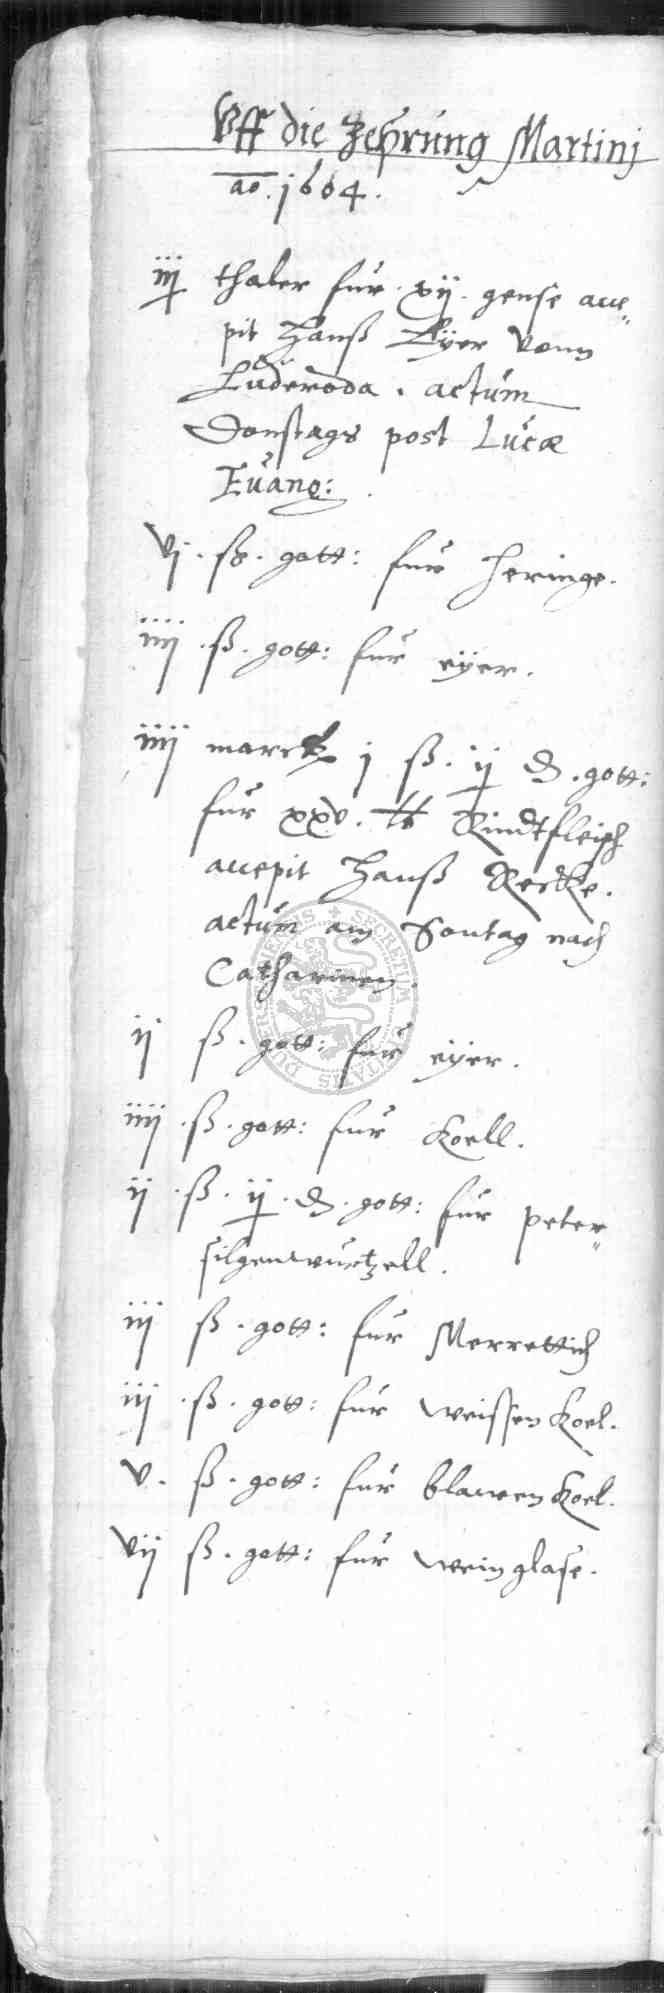 Uff die Zehrung Martinj
ao. 1604.
iij thaler fur. xij. gense acce„
pit Hanß Eÿer vonn
Lüderoda. actum
Donstags post Lucæ
Euang:
vj. ß. gott: fur heringe.
iiij. ß. gott: fur eÿer.
iiij marck j ß. ij ₰. gott:
fur xxv. ℔ Rindtfleisch
accepit Hanß Recke.
actum am Sontag nach
Catharinen.
ij ß. gott: fur eÿer.
iiij. ß. gott: fur Koell.
ij. ß. ij. ₰. gott: fur peter„
silgenwurtzell.
iij ß. gott: fur Merrettich
iij. ß. gott: fur weissen Koel.
v. ß. gott: fur blawen Koel.
vij ß. gott: fur weinglase.
SECRETUM